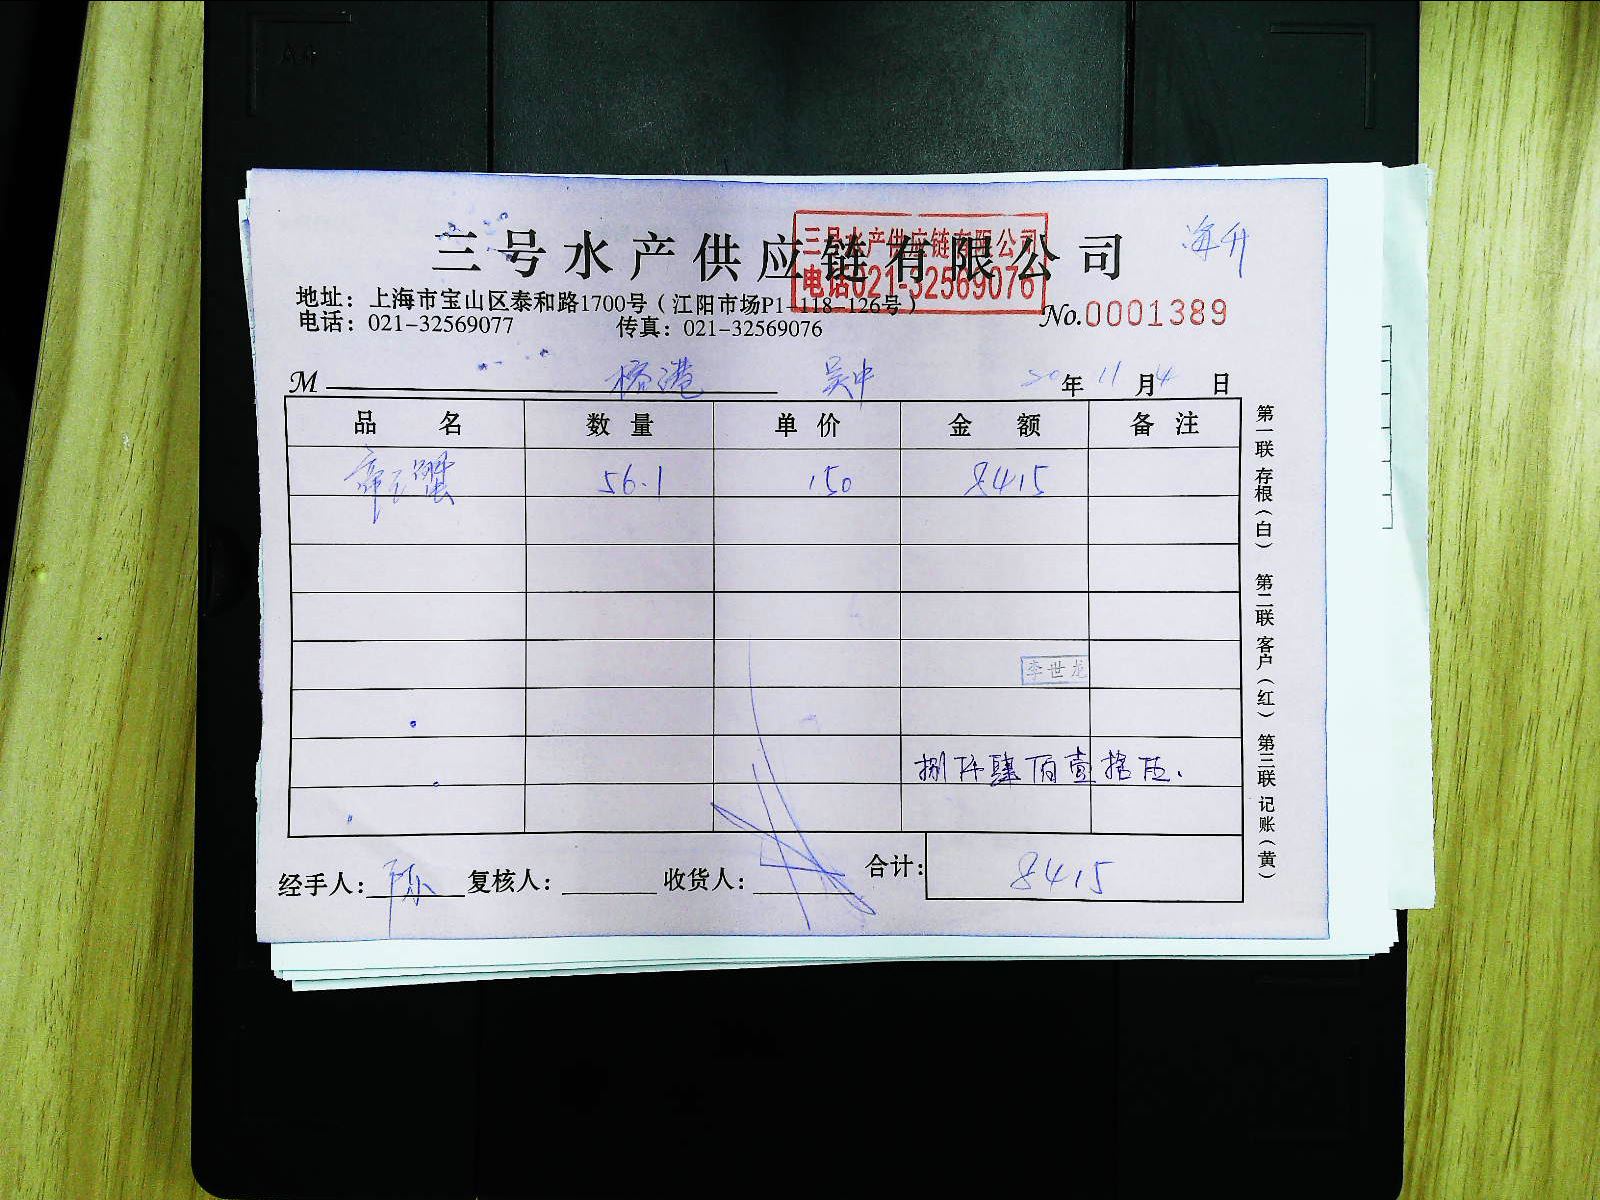 三号水产供应链有限公司
三号水产供应链有限公司
电话021-32569076
海升
地址：上海市宝山区泰和路1700号（江阳市场P1-118-126号）
电话：021-32569077 传真：021-32569076
No.0001389
M 榕港 吴中 20年11月4日
品名 数量 单价 金额 备注
蟹 56.1 150 8415
李世龙
捌仟肆佰壹拾伍.
经手人：陈 复核人： 收货人： 合计：8415
第一联 存根（白） 第二联 客户（红） 第三联 记账（黄）